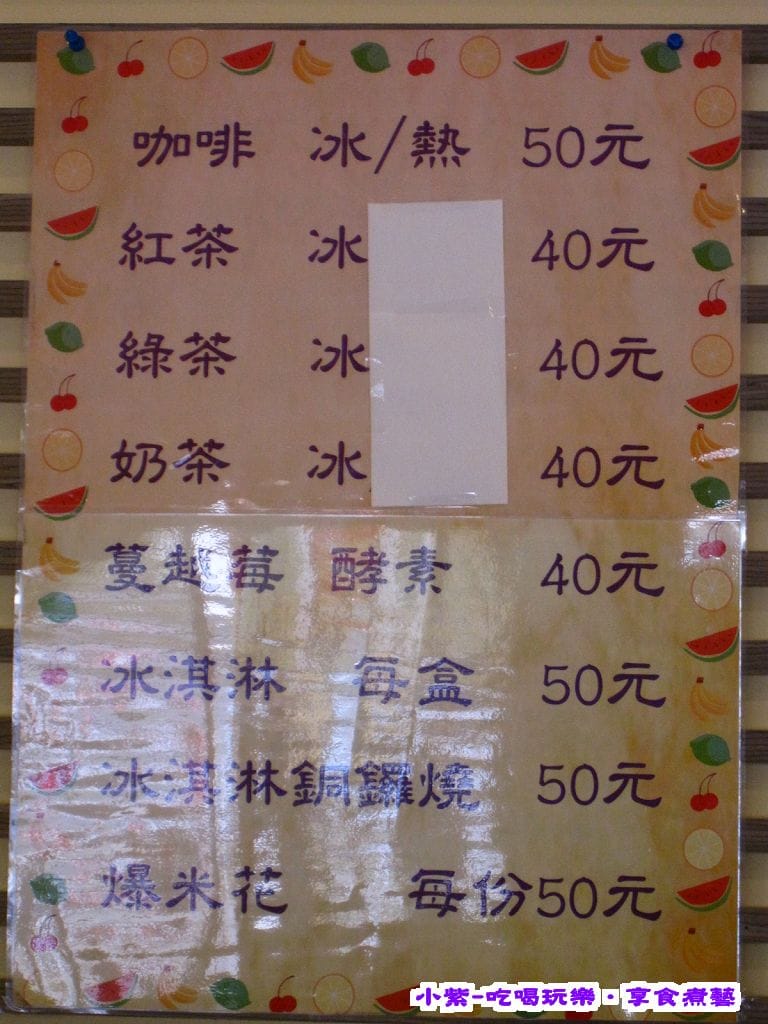 咖啡 冰/熱 50元
紅茶 冰 40元
綠茶 冰 40元
奶茶 冰 40元
蔓越莓 酵素 40元
冰淇淋 每盒 50元
冰淇淋銅鑼燒 50元
爆米花 每份50元
小紫-吃喝玩樂·享食煮藝